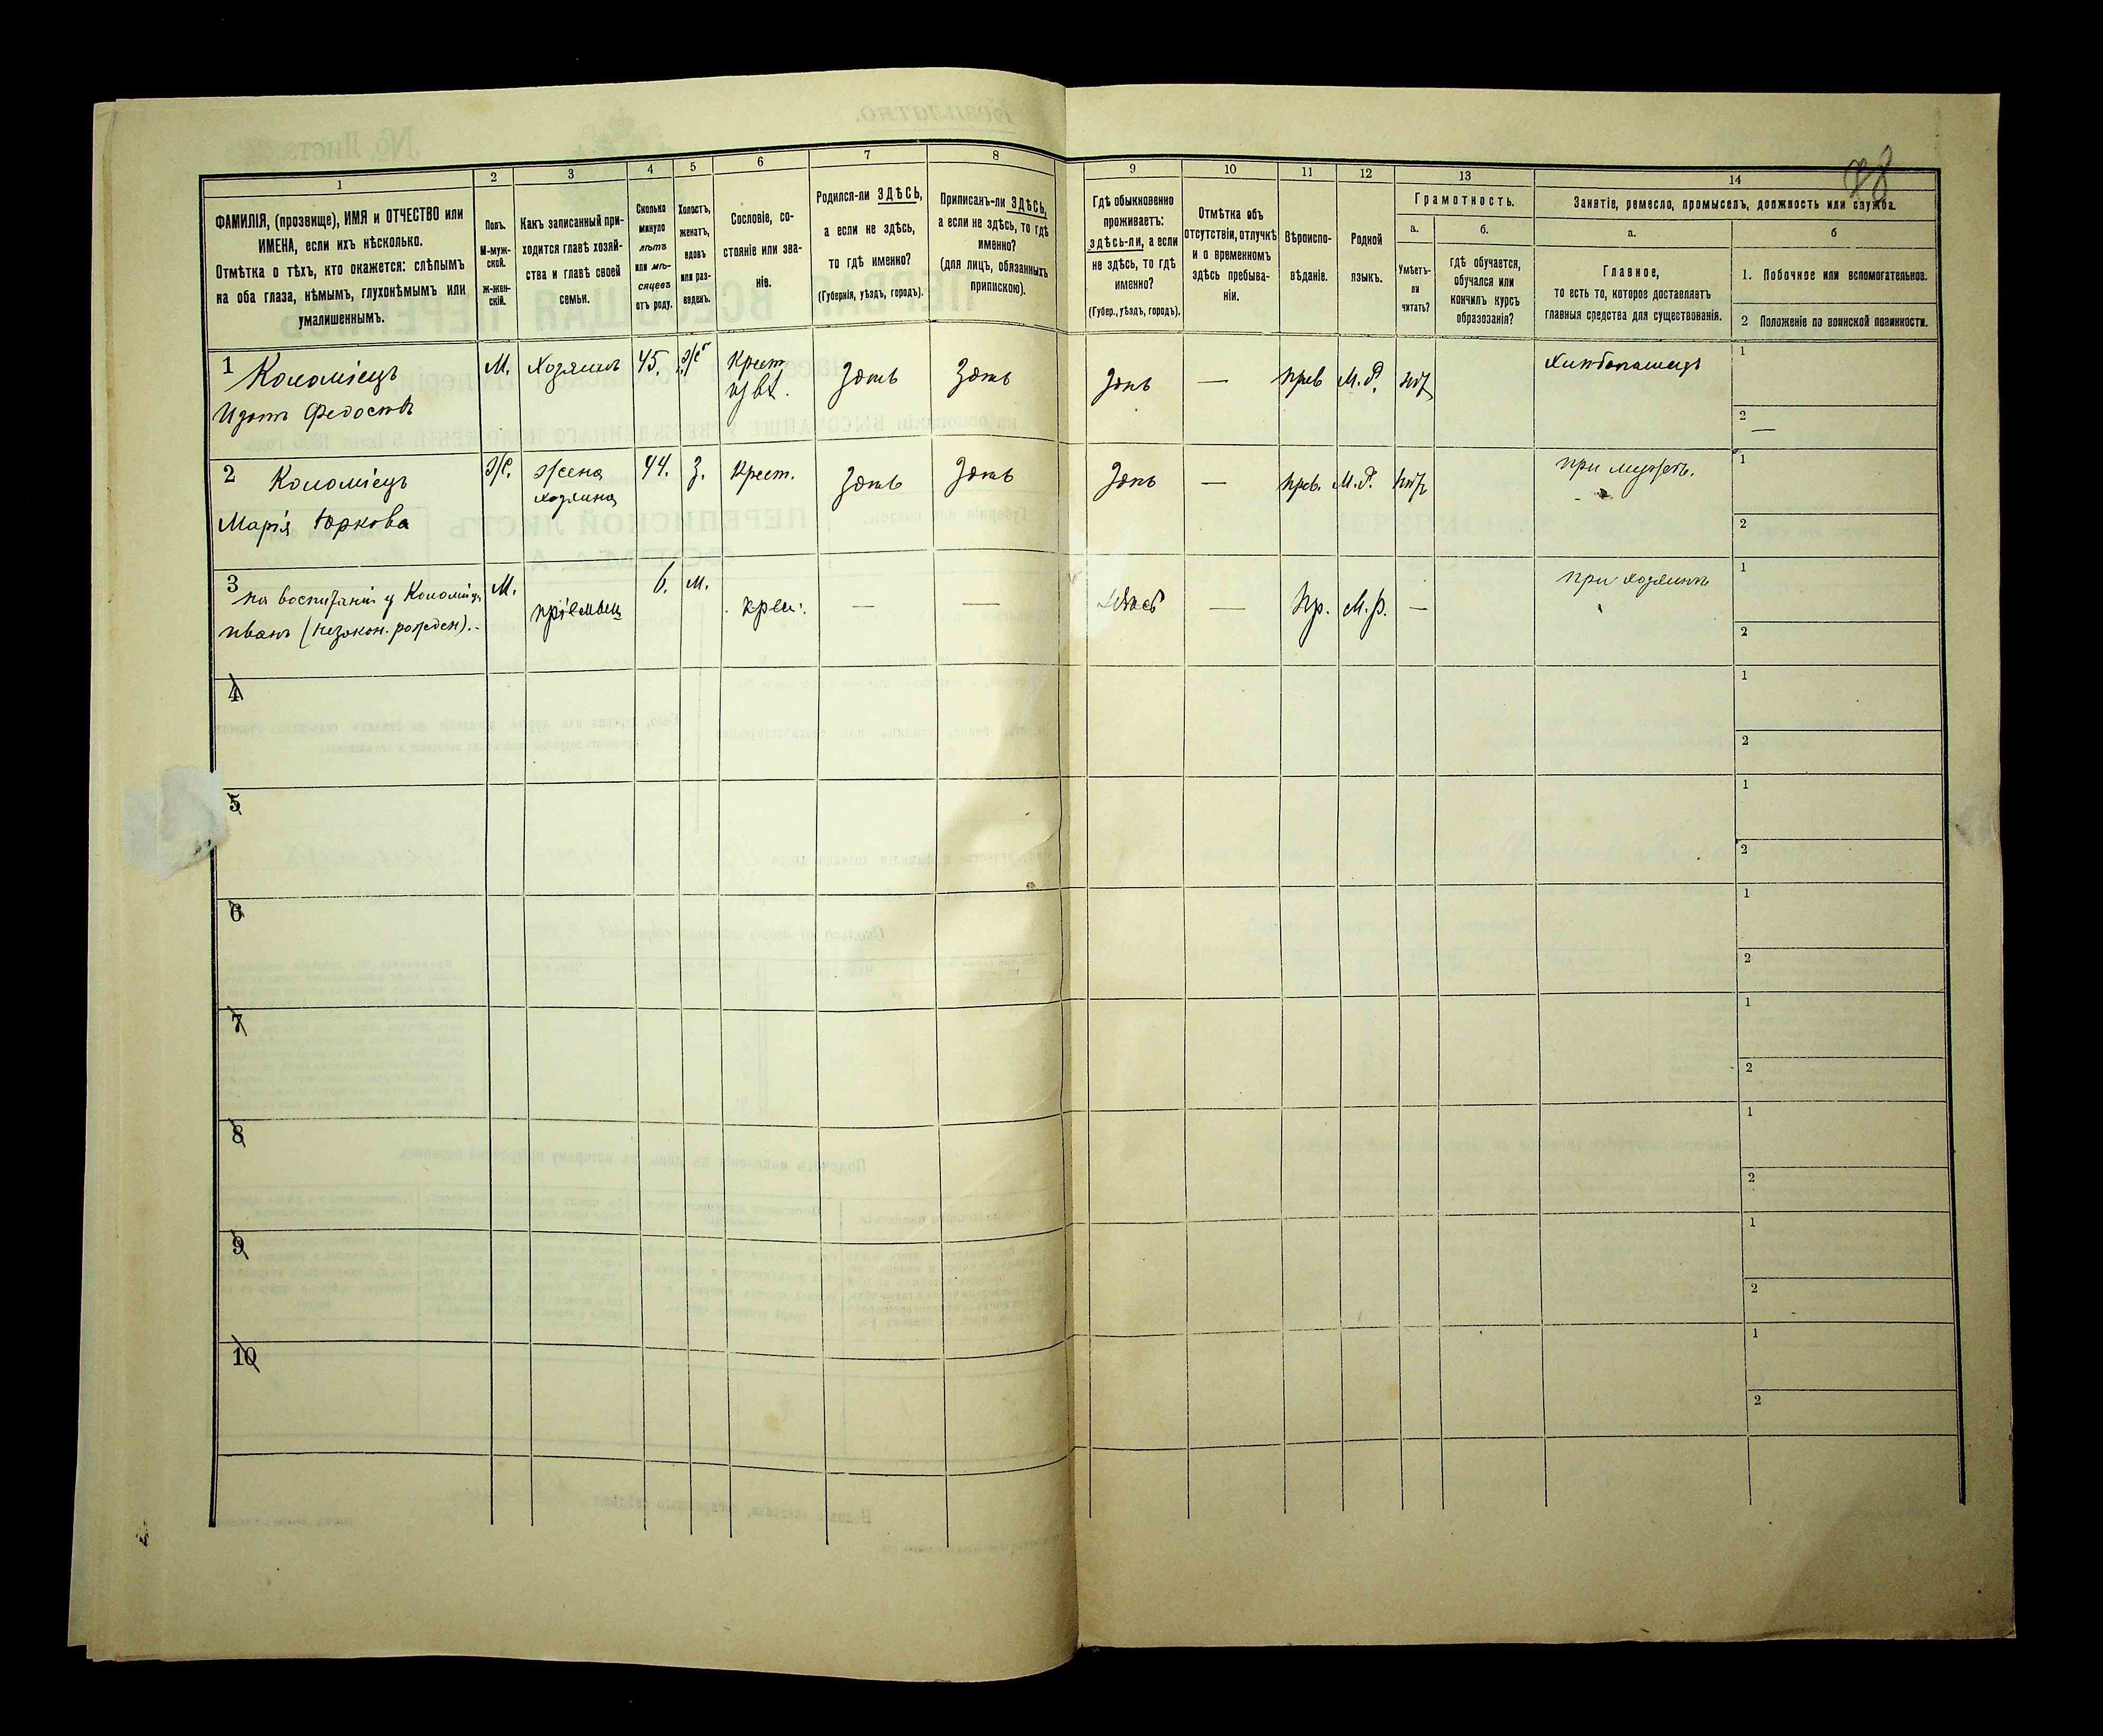 88
1
2
3
4
5
6
7
8
9
10
11
12
13
14
ФАМИЛІЯ, (прозвище), ИМЯ и ОТЧЕСТВО или
ИМЕНА, если ихъ нѣсколько.
Отмѣтка о тѣхъ, кто окажется: слѣпымъ
на оба глаза, нѣмымъ, глухонѣмымъ или
умалишеннымъ.
Полъ.
М-муж-
ской.
Ж-жен-
скій.
Какъ записанный при-
ходится главѣ хозяй-
ства и главѣ своей
семьи.
Сколько
минуло
лѣтъ
или мѣ-
сяцевъ
отъ роду.
Холостъ,
женатъ,
вдовъ
или раз-
веденъ.
Сословіе, со-
стояніе или зва-
ніе.
Родился-ли ЗДѢСЬ,
а если не здѣсь,
то гдѣ именно?
(Губернія, уѣздъ, городъ).
Приписанъ-ли ЗДѢСЬ,
а если не здѣсь, то гдѣ
именно?
(для лицъ, обязанныхъ
припискою).
Гдѣ обыкновенно
проживаетъ:
здѣсь-ли, а если
не здѣсь, то гдѣ
именно?
(Губер., уѣздъ, городъ).
Отмѣтка объ
отсутствіи, отлучкѣ
и о временномъ
здѣсь пребыва-
ніи.
Вѣроиспо-
вѣданіе.
Родной
языкъ.
Грамотность.
а.
Умѣетъ-
ли
читать?
б.
гдѣ обучается,
обучался или
кончилъ курсъ
образованія?
Занятіе, ремесло, промыселъ, должность или служба.
а.
Главное,
то есть то, которое доставляетъ
главныя средства для существованія.
б
1. Побочное или вспомогательное.
2 Положеніе по воинской повинности.
1 Коломіецъ
Изотъ Федосѣевъ
М. Хозяинъ 45. Ж. Крест. Здѣсь Здѣсь Здѣсь — Прав М.Р. нѣтъ Хлѣбопашецъ
1
2 —
2 Коломіецъ
Марія Юркова
Ж. Жена
хозяина
44. З. Крест. Здѣсь Здѣсь Здѣсь — Прав. М.Р. нѣтъ при мужѣ.
1
2
3 на воспитаніи у Коломійц.
Иванъ (незакон. рожден).-
М. пріемышъ 6. М. крес. — — — Пр. М.Р. — при хозяинѣ
1
2
4
1
2
5
1
2
6
1
2
7
1
2
8
1
2
9
1
2
10
1
2